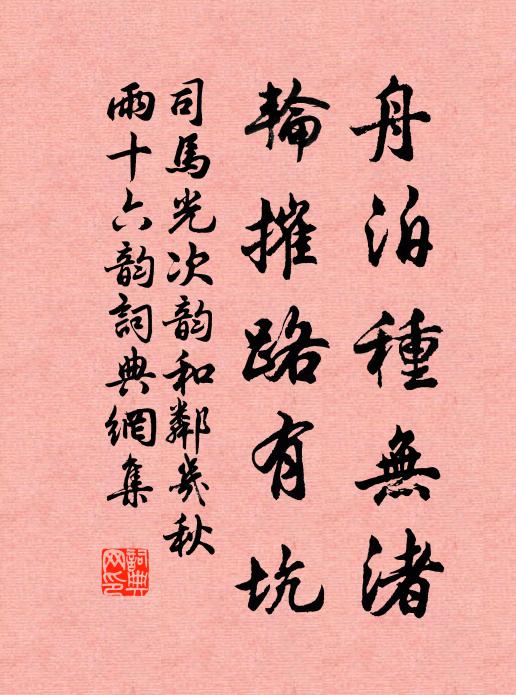 舟泊種無渚
輪摧路有坑
司馬光次韵和鄰幾秋
雨十六韵詞典網集
詞典网印